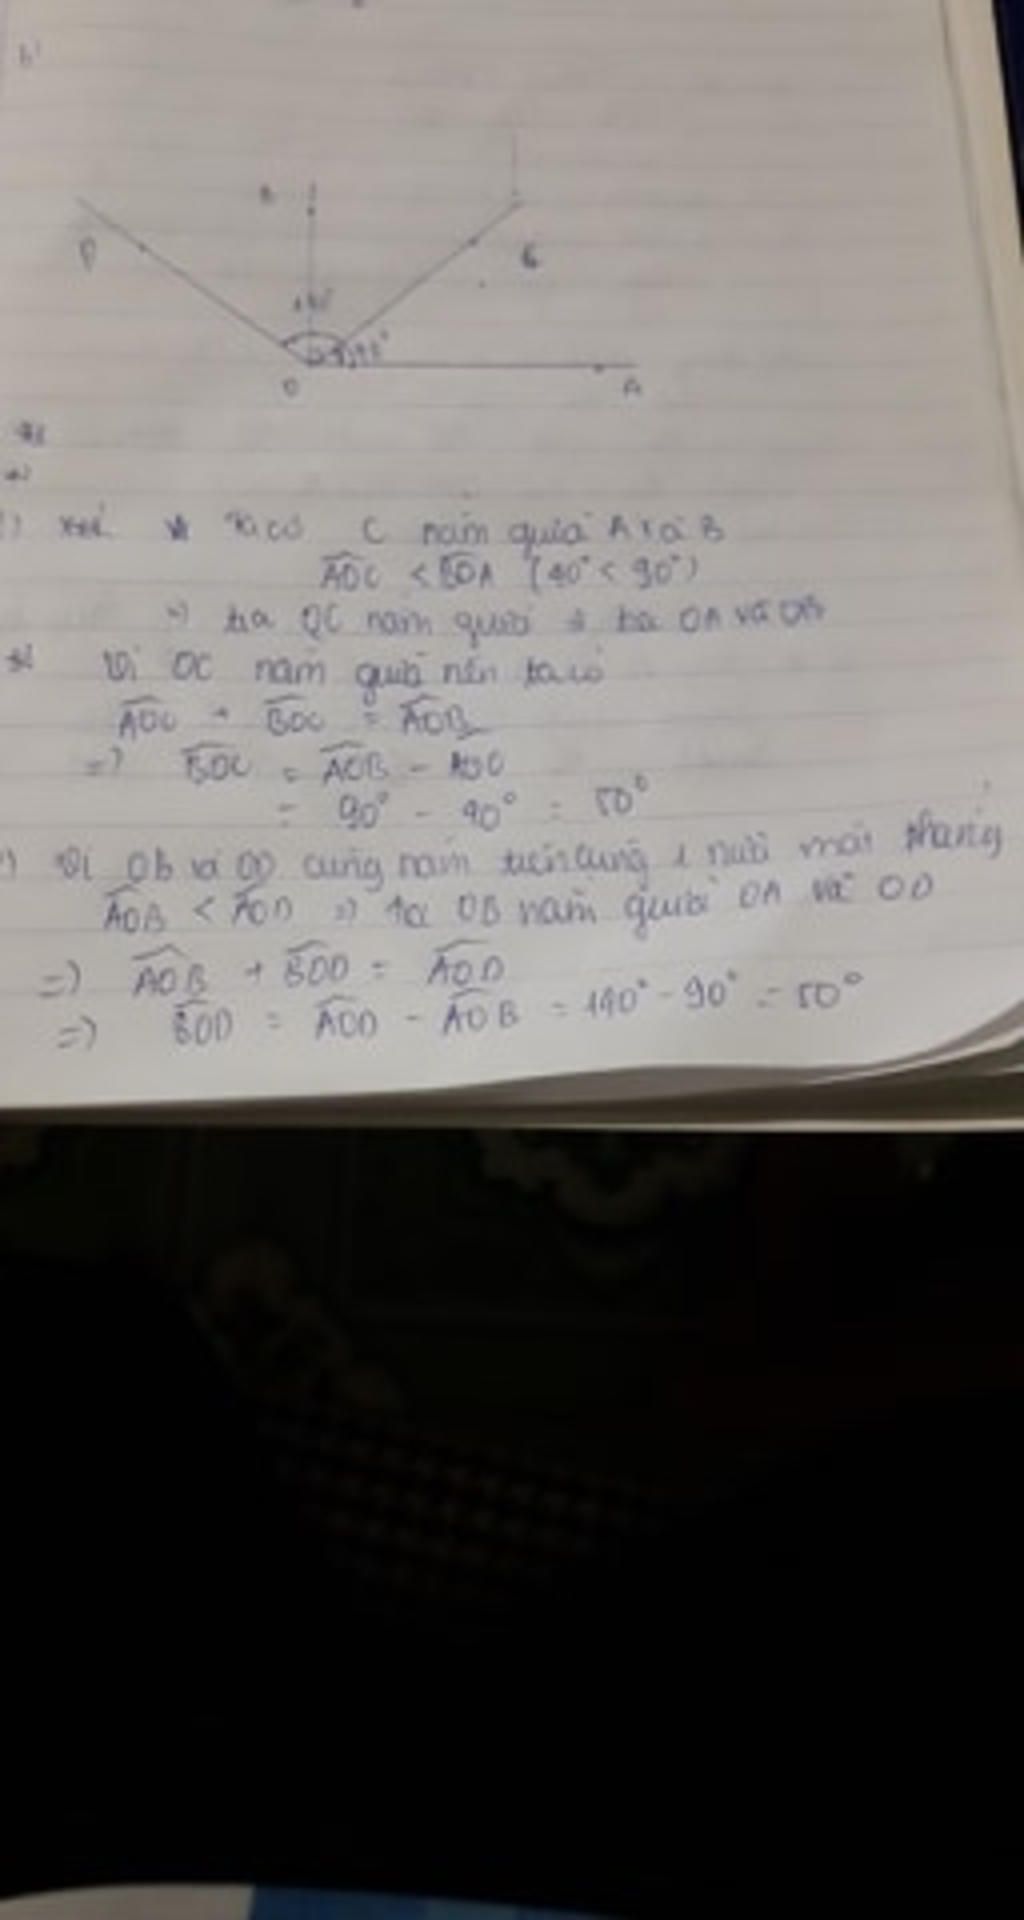 b'
D
B
C
O
A
Ta có C nằm giữa A và B
AOC < BOA (40° < 90°)
=> tia OC nằm giữa 2 tia OA và OB
Vì OC nằm giữa nên ta có
AOC + BOC = AOB
=> BOC = AOB - AOC
= 90° - 40° = 50°
Vì OB và OD cùng nằm cùng 1 nửa mặt phẳng
AOB < AOD => tia OB nằm giữa OA và OD
=> AOB + BOD = AOD
=> BOD = AOD - AOB = 140° - 90° = 50°